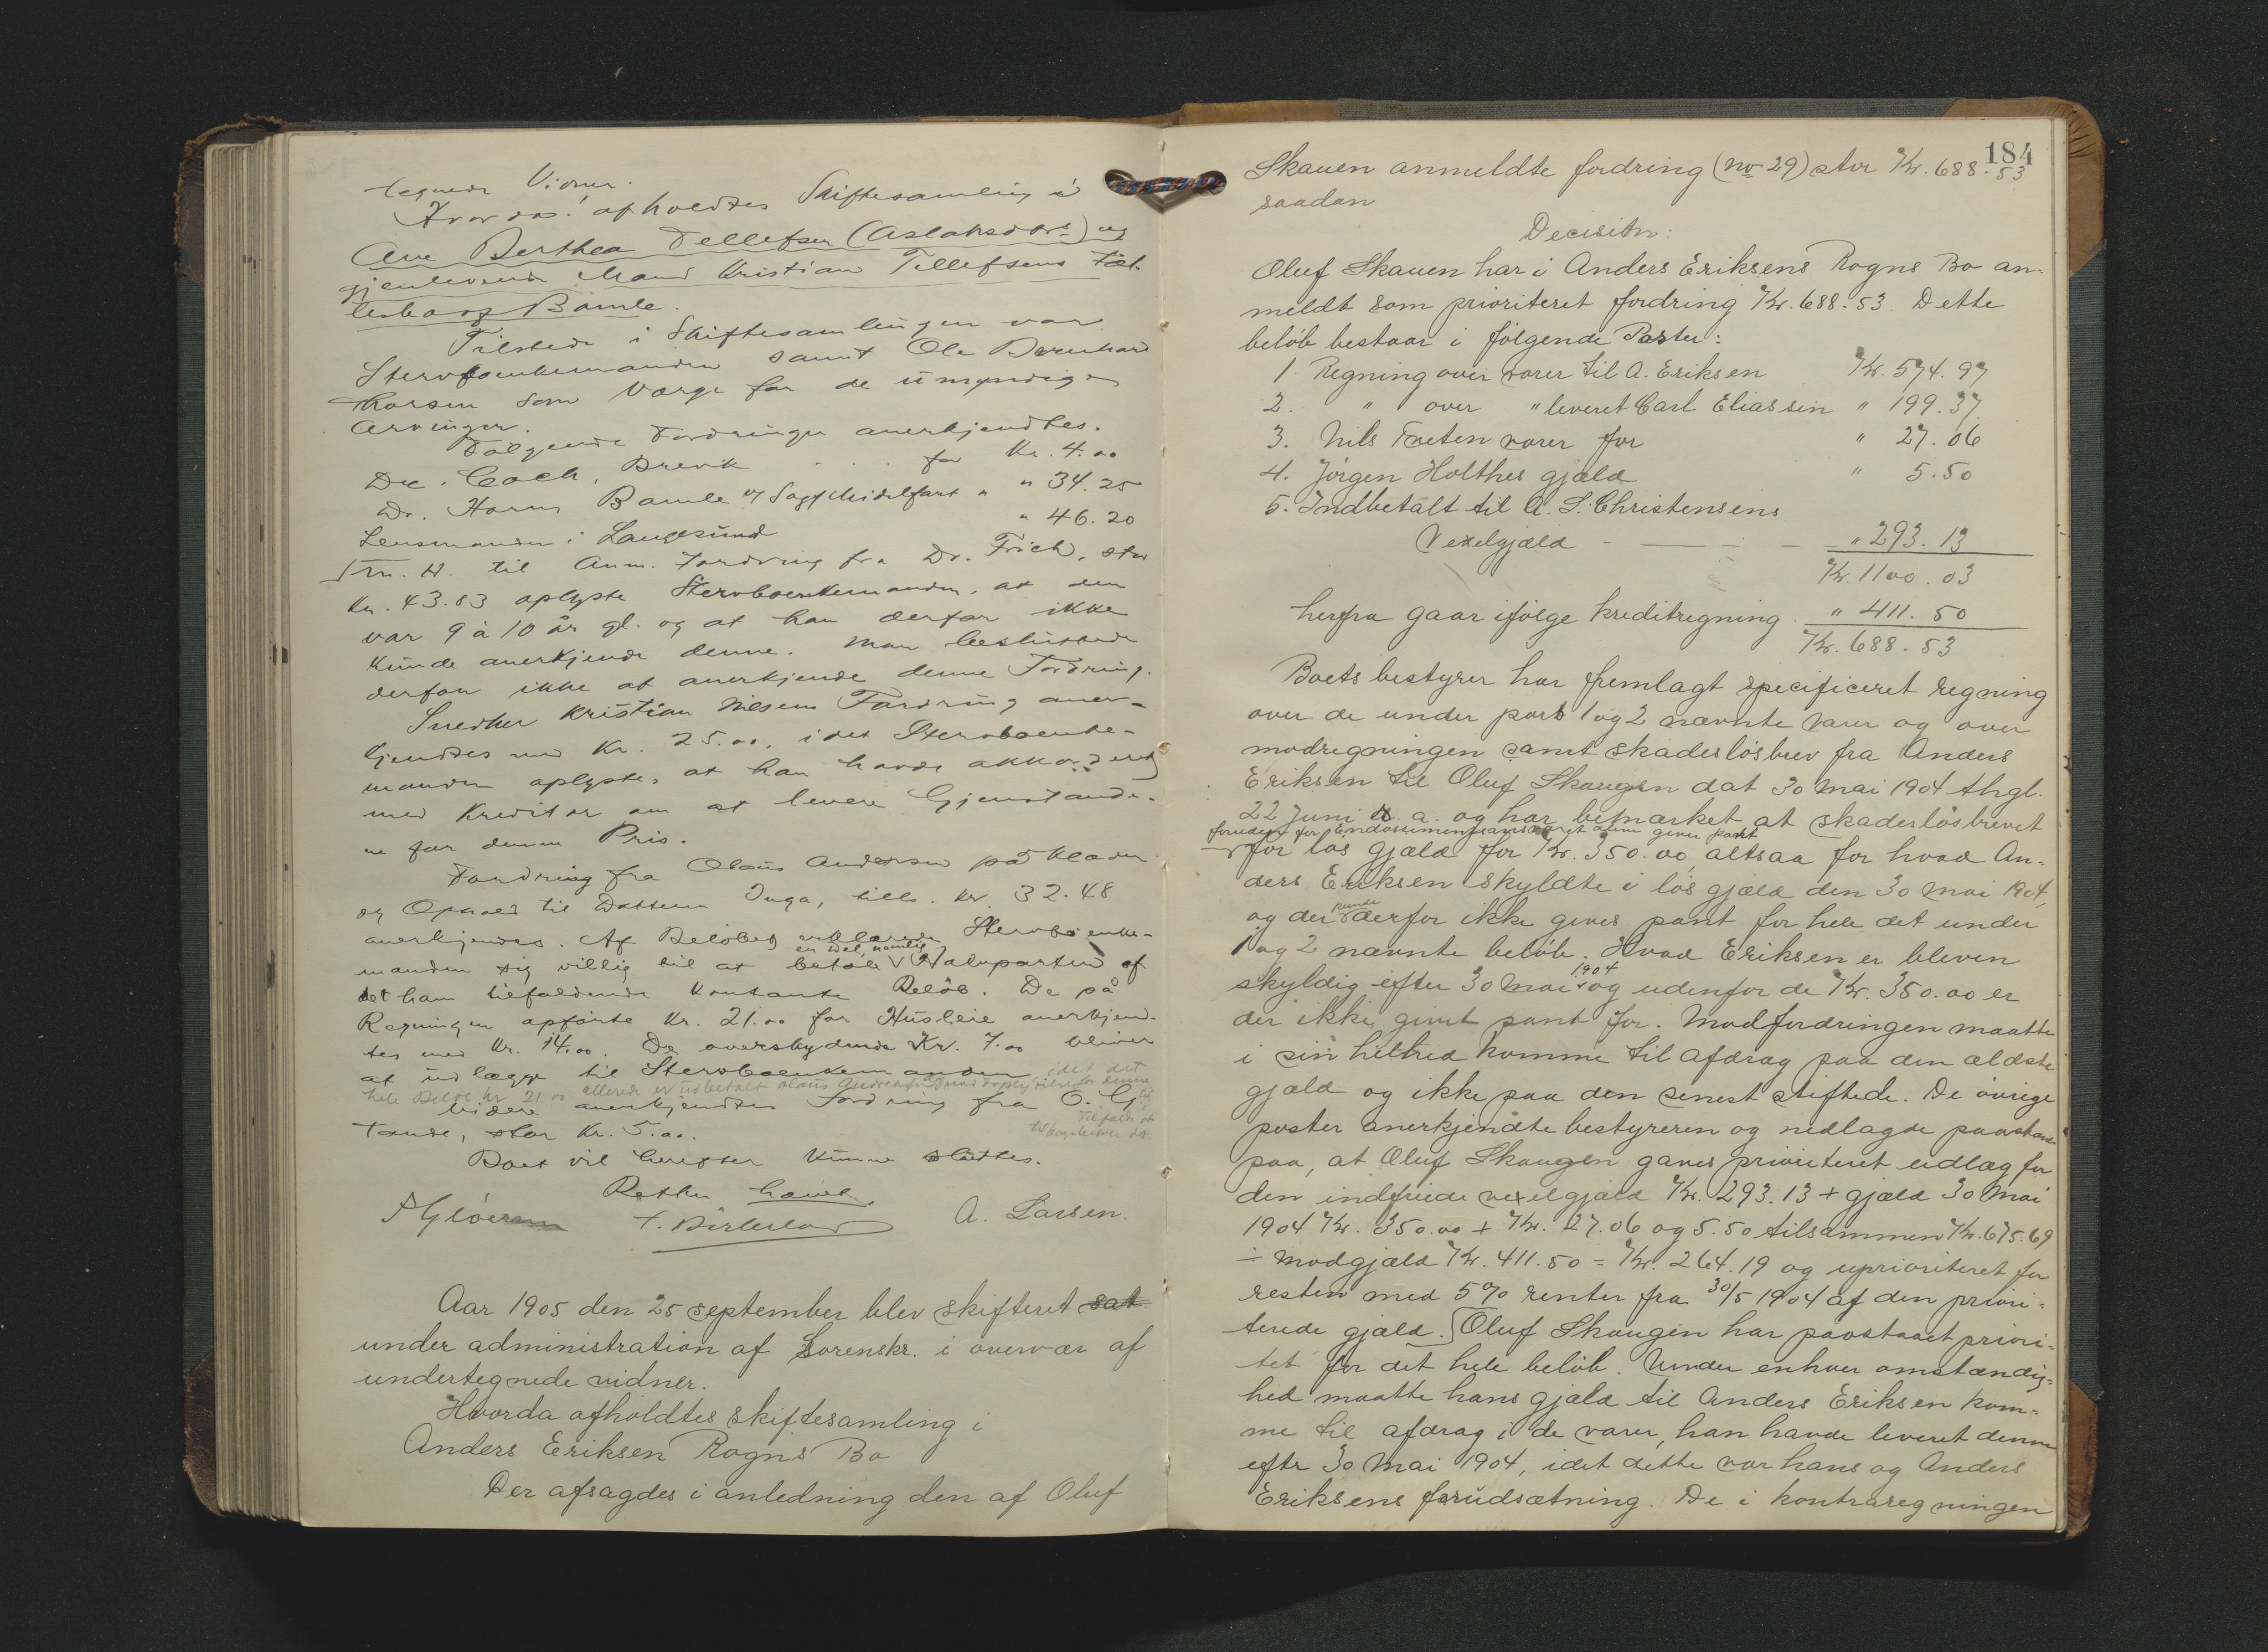 tegnede Vidner.
Hvor da! afholdtes Skiftesamling i
Ane Berthea Tellefsen (Aslaksdtr.) og
gjenlevende Mand Kristian Tellefsens
Bamle.
Tilstede i Skiftesamlingen var
Sterboenkemanden samt Ole Bernhard
Larsen som Værge for de umyndige
Arvinger.
Følgende Fordringer anerkjendtes.
Coch, Brevik for Kr. 4.00
Dr. Horns Bamle v/ Sagf. Midelfart " " 34.25
Lensmanden i Langesund " 46.20
M. H. til Anm. Fordring fra Dr. Frich, stor
Kr. 43.83 oplyste Sterboenkemanden, at den
var 9 à 10 år gl. og at han derfor ikke
kunde anerkjende denne. Man besluttede
derfor ikke at anerkjende denne Fordring.
Snedker Kristian Nilsens Fordring aner-
kjendtes med Kr. 25.00, idet Sterboenke-
manden oplyste, at han havde akkorderet
med Kreditor om at levere Gjenstande-
ne for denne Pris.
Fordring fra Olaus Andersen på Klæder
og Ophold til Datteren Inga, tills. kr. 32.48
anerkjendes. Af Beløbet erklærede Sterboenke-
manden sig villig til at betale en Del, nemlig Halvparten af
det ham tilfaldende kontante Beløb. De på
Regningen opførte Kr. 21.00 for Husleie anerkjend-
tes med Kr. 14.00. De overskydende Kr. 7.00 bliver
at udlægge til Sterboenkemanden, idet det
hele Beløb kr 21.00 allerede er udbetalt Olaus Andersen med Forpligtelse for denne til
i Tilfælde at
tilbagelevere det
Videre anerkjendtes Fordring fra O. G.
Tande, stor Kr. 5.00.
Boet vil herefter kunne sluttes.
Retten hævet.
A. Larsen.
Aar 1905 den 25 september blev skifteret sat
under administration af Sorenskr. i overvær af
undertegnede vidner.
Hvorda afholdtes skiftesamling i
Anders Eriksen Rogns Bo
Der afsagdes i anledning den af Oluf
184
Skauen anmeldte fordring (no 29) stor Kr. 688.53
saadan
Decisitn:
Oluf Skauen har i Anders Eriksens Rogns Bo an-
meldt som prioriteret fordring Kr. 688.53. Dette
beløb bestaar i følgende Poster:
1. Regning over varer til A. Eriksen Kr. 574.97
2. " over " leveret Carl Eliassen " 199.37
3. Nils Tveten varer for " 27.06
4. Jørgen Holthes gjæld " 5.50
5. Indbetalt til A. S. Christensens
Vexelgjæld - " 293.13
Kr. 1100.03
herfra gaar ifølge kreditregning " 411.50
Kr. 688.53
Boets bestyrer har fremlagt specificeret regning
over de under post 1 og 2 nævnte varer og over
modregningen samt skadesløsbrev fra Anders
Eriksen til Oluf Skaugen dat 30 Mai 1904 thgl.
22 Juni s. a. og har bemærket at skadesløsbrevet
foruden for Endossementsansvaret kun giver pant
for løs gjæld for Kr. 350.00, altsaa for hvad An-
ders Eriksen skyldte i løs gjæld den 30 mai 1904,
og der kunde derfor ikke gives pant for hele det under
1 og 2 nævnte beløb. Hvad Eriksen er bleven
skyldig efter 30 Mai 1904 og udenfor de Kr. 350.00 er
der ikke givet pant for. Modfordringen maatte
i sin helhed komme til afdrag paa den ældste
gjæld og ikke paa den senest stiftede. De øvrige
poster anerkjendte bestyreren og nedlagde paastand
paa, at Oluf Skaugen gaves prioriteret udlæg for
den indfriede vexelgjæld Kr. 293.13 + gjæld 30 Mai
1904 Kr. 350.00 + Kr. 27.06 og 5.50 tilsammen Kr. 675.69
÷ Modgjæld Kr. 411.50 = Kr. 264.19 og uprioriteret for
resten med 5% renter fra 30/5 1904 af den priori-
terede gjæld. Oluf Skaugen har paastaaet priori-
tet for det hele beløb. Under enhver omstændig-
hed maatte hans gjæld til Anders Eriksen kom-
me til afdrag i de varer, han havde leveret denne
efter 30 Mai 1904, idet dette var hans og Anders
Eriksens forudsætning. De i kontraregningen